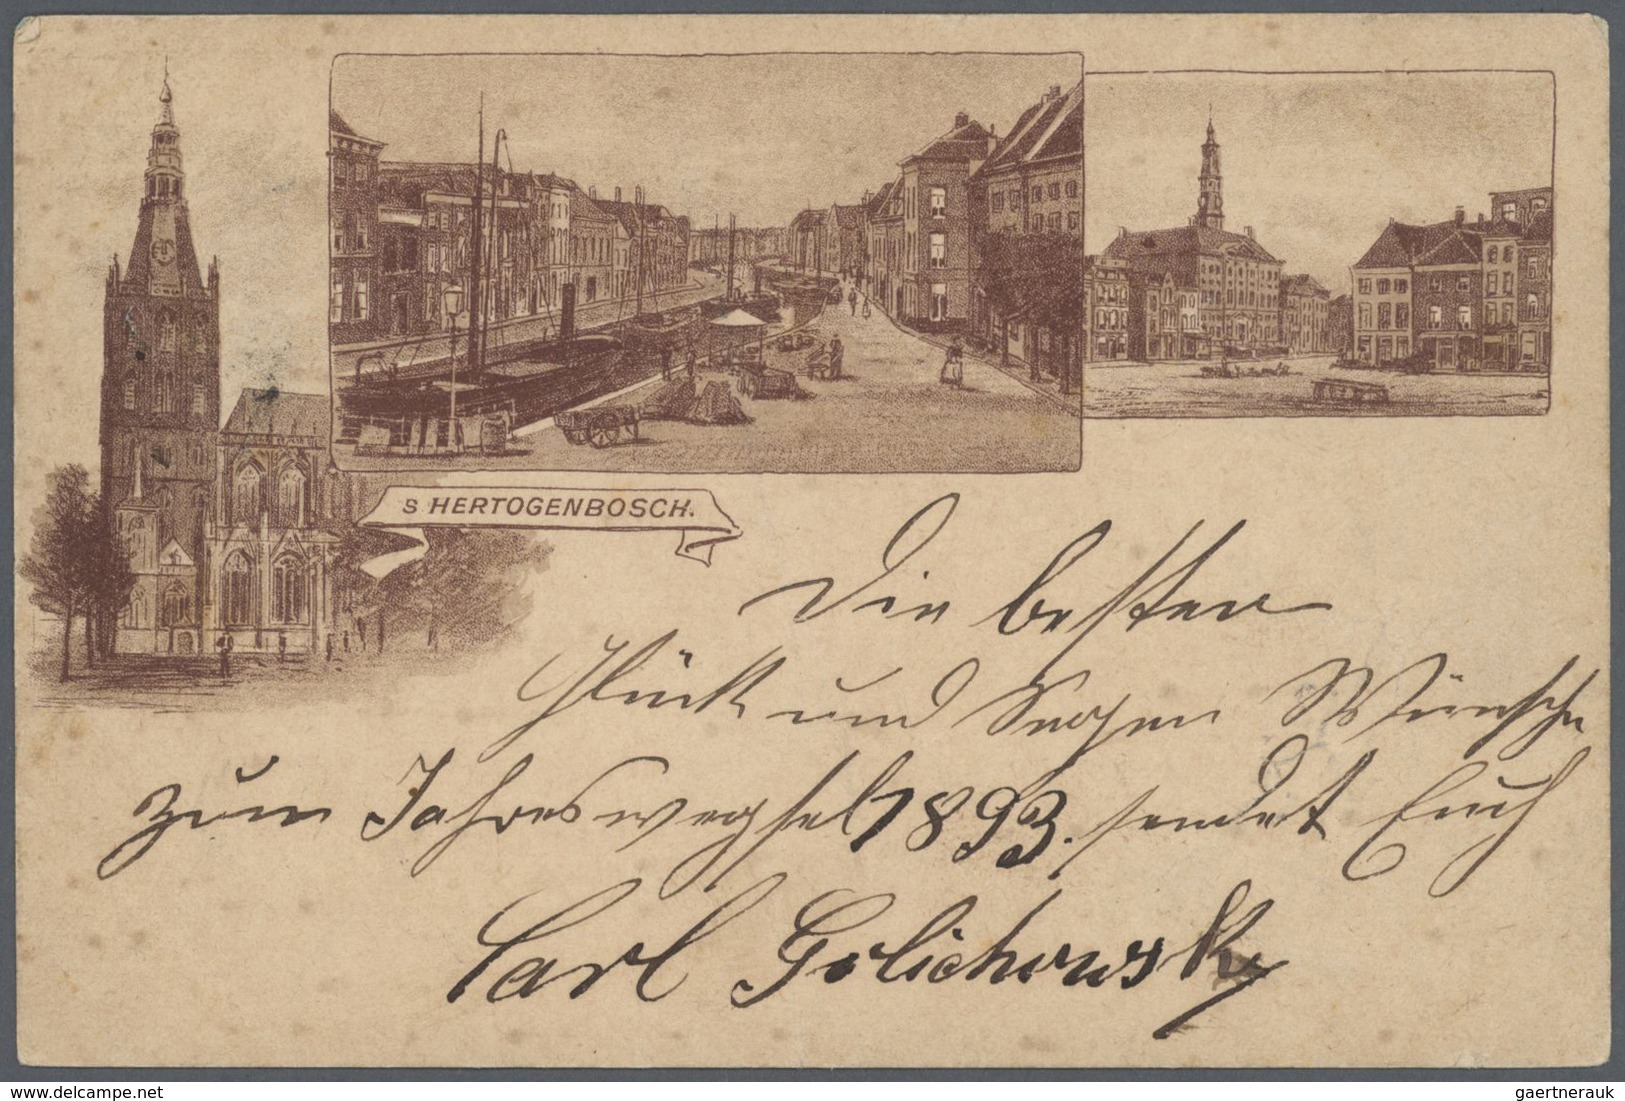 S HERTOGENBOSCH.
Die besten
Glück und Segen Wünsche
zum Jahreswechsel 1893. sendet Euch
Carl Golichowsky
gaertnerauk